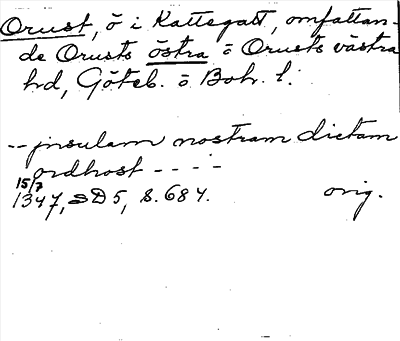 Orust, ö i Kattegatt, omfattan-
de Orusts östra o Orusts västra
hd, Göteb. o Boh. l.
-- jnsulam nostram dictam
ordhost - - - -
15/7
1347, SD 5, s. 684. orig.